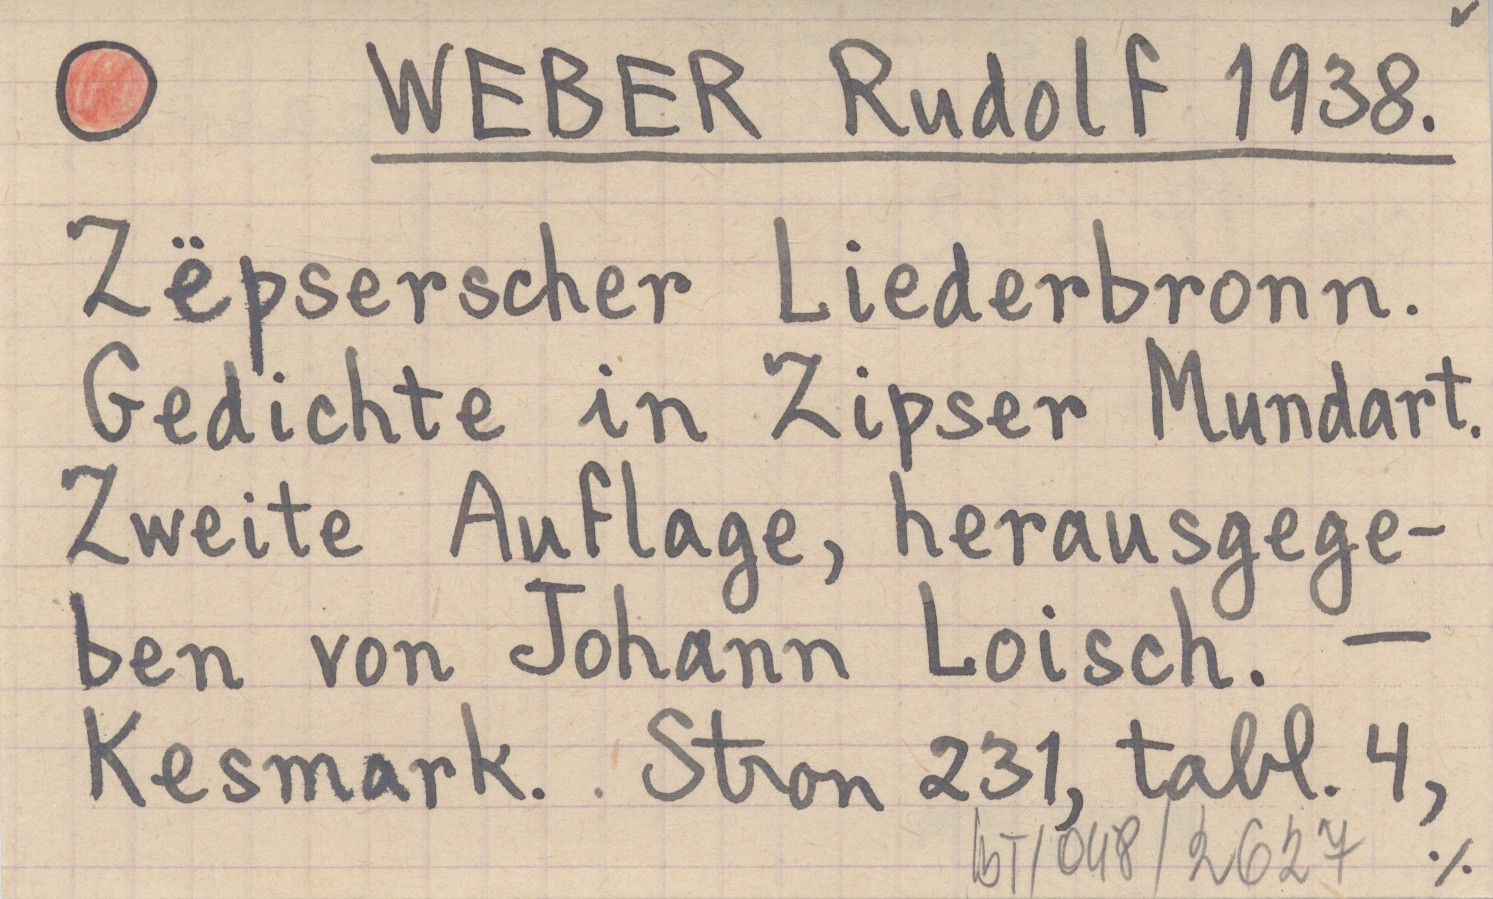 WEBER Rudolf 1938.
Zëpserscher Liederbronn.
Gedichte in Zipser Mundart.
Zweite Auflage, herausgege-
ben von Johann Loisch. —
Kesmark. . Stron 231, tabl. 4,
bT/048/2627 ./.